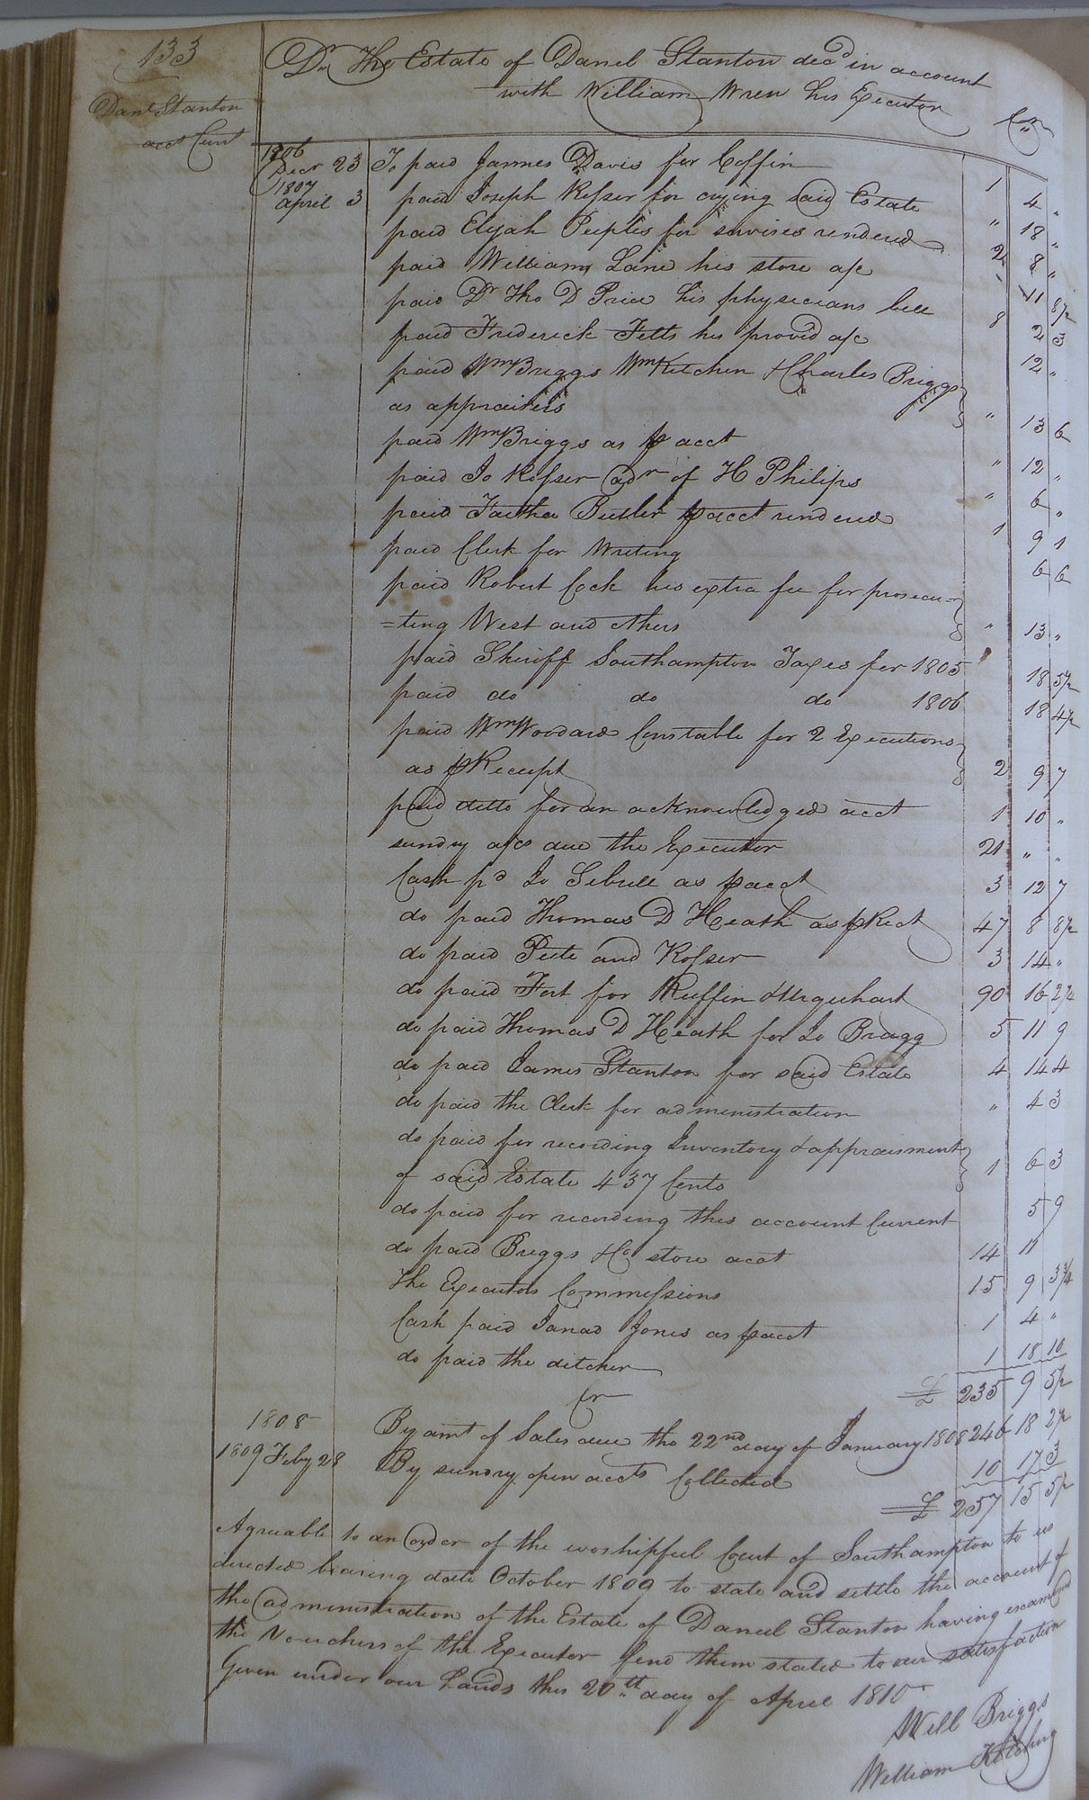 133
Danl Stanton
acct Curt
Dr The Estate of Danel Stanton decd in account
with William Wren his Executor
Cr
1806
Decr 23 To paid James Davis for Coffin 1 4 "
1807
April 3 paid Joseph Rosser for crying said Estate " 18 "
paid Elijah Peeples for servises rendered 2 8 "
paid William Lane his store a/c 11 8½
paid Dr Tho D Price his physicians bill 8 2 3
paid Frederick Fetts his provd a/c 12 "
paid Wm Briggs Wm Kitchen & Charles Briggs
as appraisers " 13 6
paid Wm Briggs as p acct " 12 "
paid Jo Rosser adr of H Philips " 6 "
paid Butler p acct rendered 1 9 1
paid Clerk for Writing 6 6
paid Robert Cock his extra fee for prosecu=
=ting West and others " 13 "
paid Sheriff Southampton Taxes for 1805 18 5½
paid do do do 1806 18 4½
paid Wm Woodard Constable for 2 Executions
as p Receipt 2 9 7
paid ditto for an acknowledged acct 1 10 "
sundry a/cs due the Executor 21 " "
Cash pd Jo as p acct 3 12 7
do paid Thomas D Heath as p Rect 47 8 8½
do paid Pete and Rosser 3 14 "
do paid Fort for Ruffin & Urquhart 90 16 2¼
do paid Thomas D Heath for Jo Bragg 5 11 9
do paid James Stanton for said Estate 4 14 4
do paid the Clerk for administration " 4 3
do paid for recording Inventory & appraisment
of said Estate 437 Cents 1 6 3
do paid for recording this account Current 5 9
do paid Briggs & Co store acct 14 11
The Executors Commissions 15 9 3¾
Cash paid Jones as p acct 1 4 "
do paid the ditcher 1 18 10
£ 235 9 5½
Cr
1808 By amt of Sales due the 22nd day of January 1808 246 18 2½
1809 Feby 28 By sundry open accts Collected 10 17 3
£ 257 15 5½
Agreable to an order of the worshipful Court of Southampton to us
directed bearing date October 1809 to state and settle the account of
the administration of the Estate of Daniel Stanton having examined
the Vouchers of the Executor find them stated to our satisfaction
Given under our hands this 20th day of April 1810
Will Briggs
William